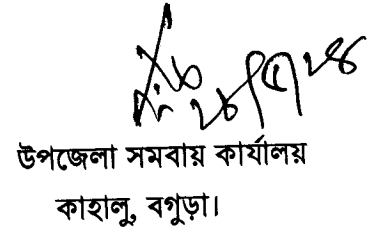 উপজেলা সমবায় কার্যালয়
কাহালু, বগুড়া।